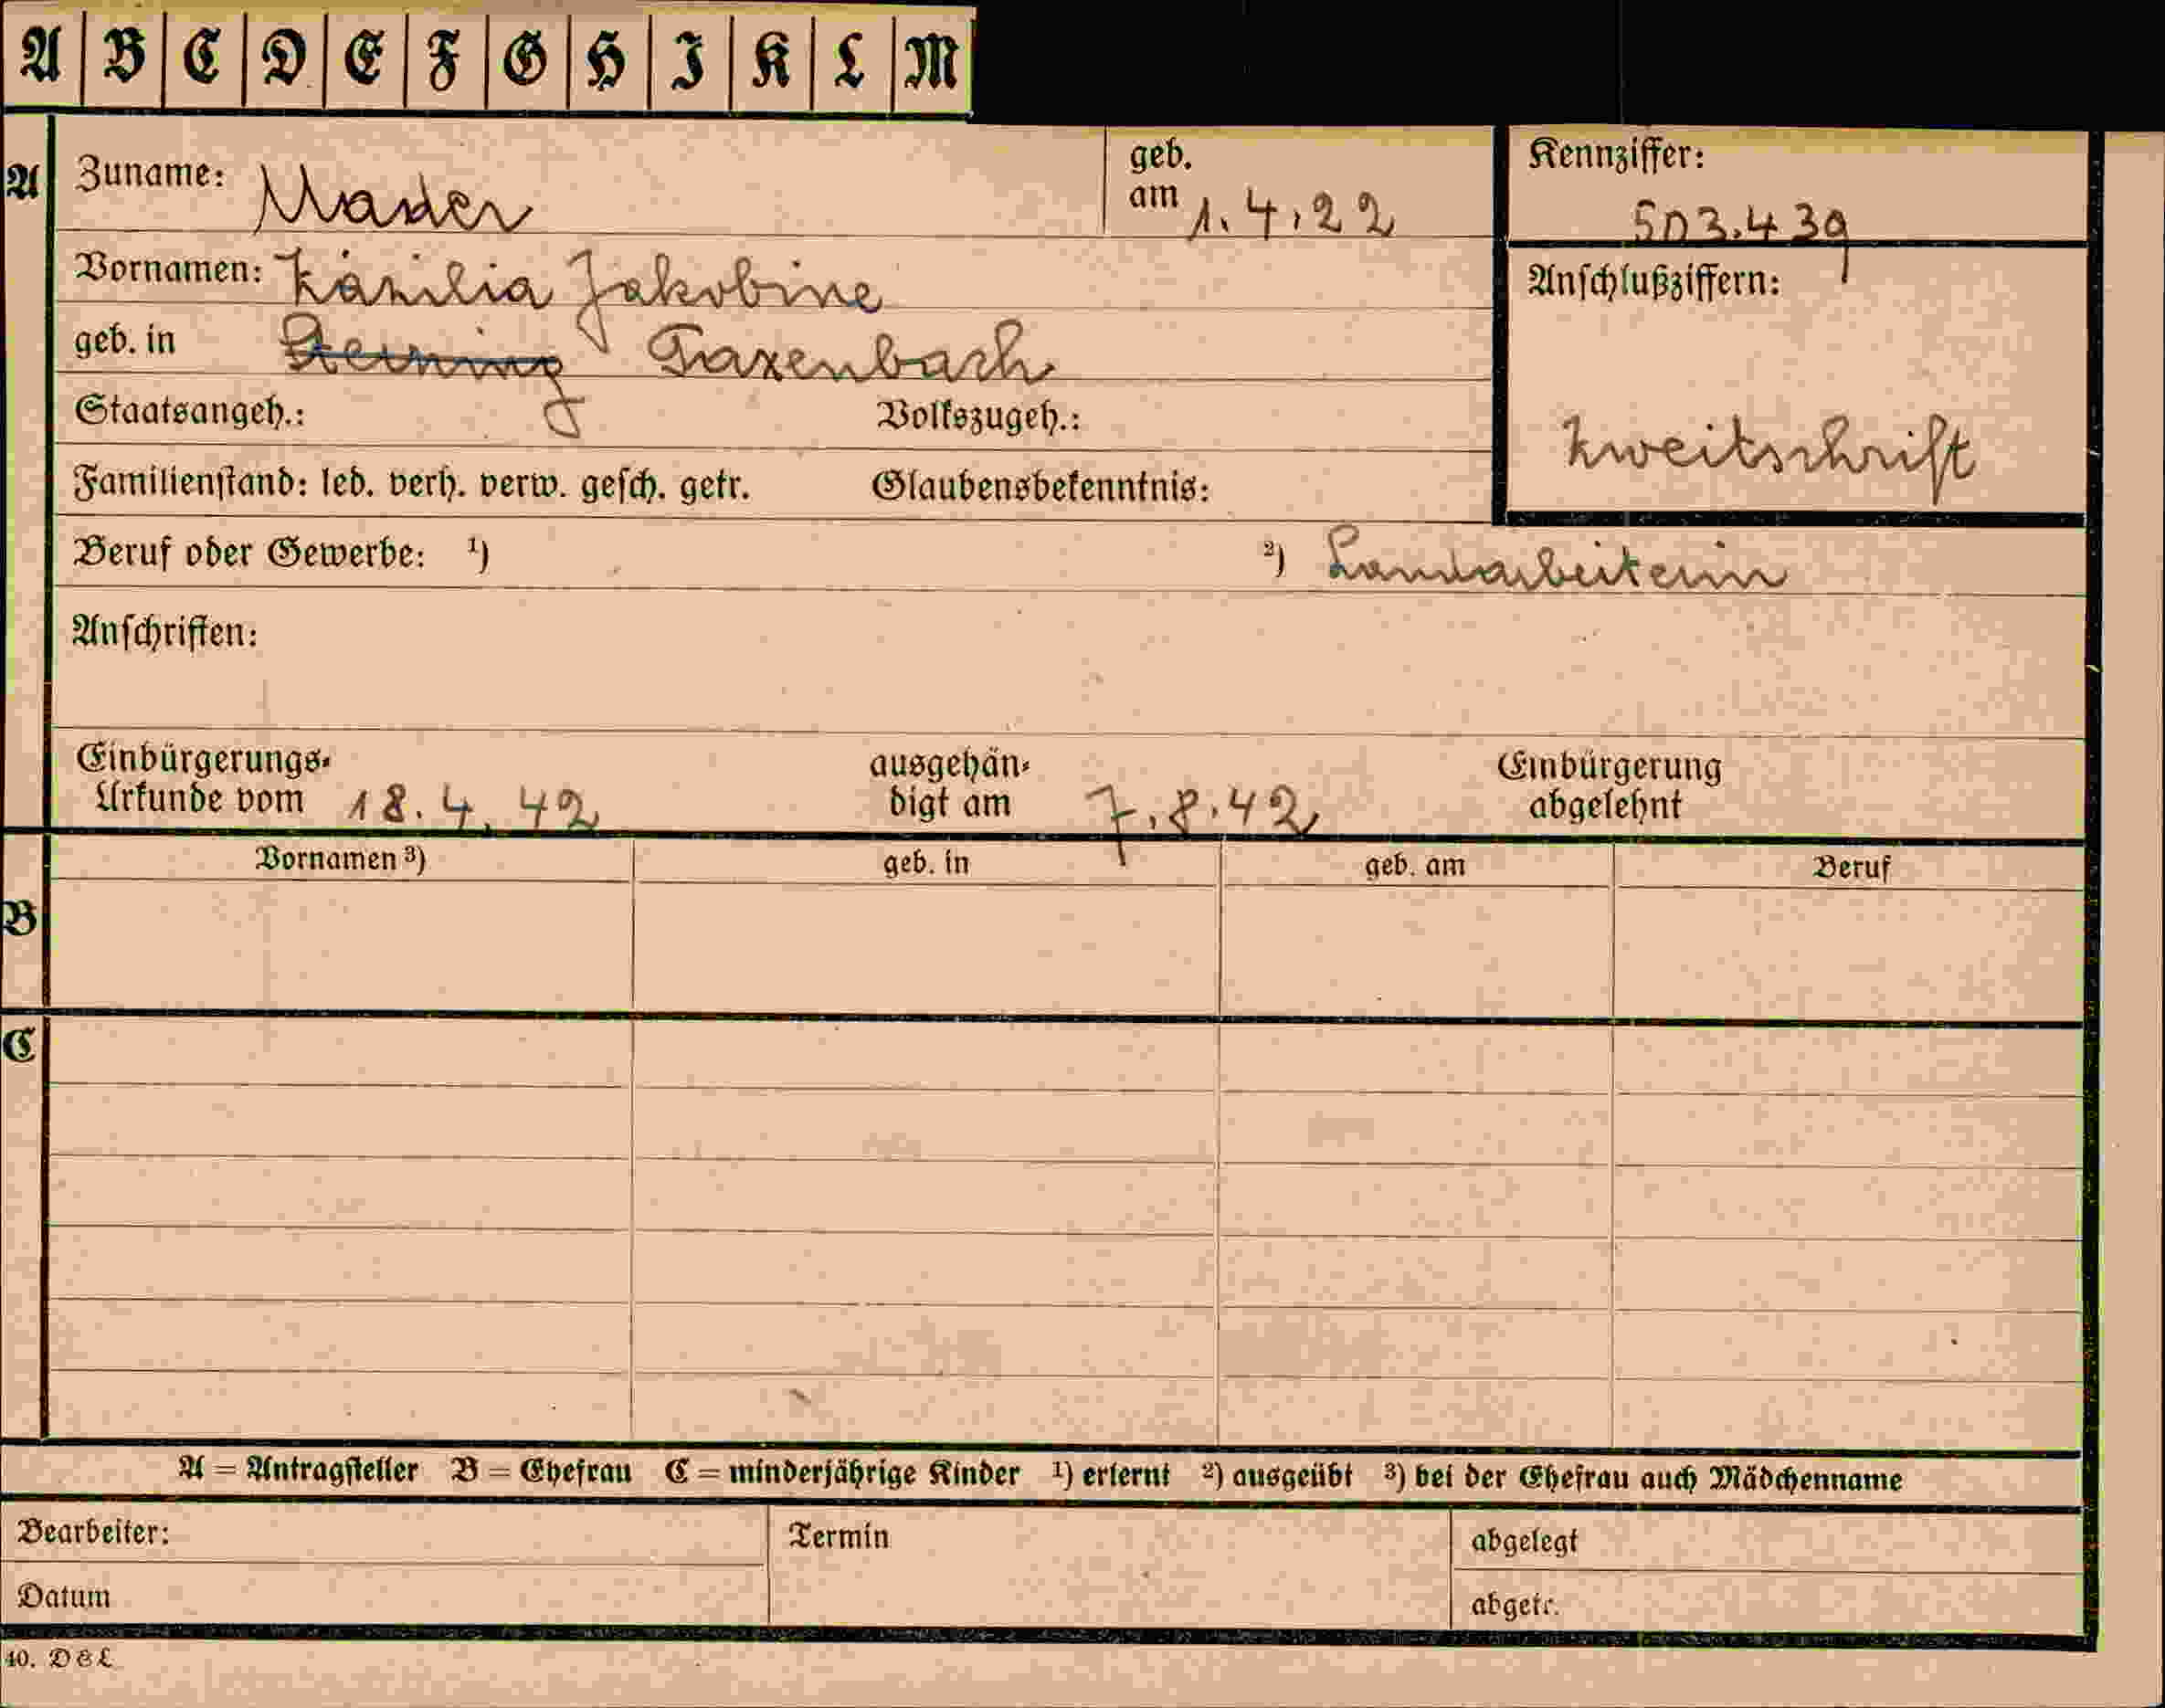 A B C D E F G H I K L M
A Zuname: Mader geb. am 1.4.22
Kennziffer: 503.439
Vornamen: Käzilia Jakobine
Anschlußziffern:
geb. in Taxenbach
Zweitschrift
Staatsangeh.: Volkszugeh.:
Familienstand: led. verh. verw. gesch. getr. Glaubensbekenntnis:
Beruf oder Gewerbe: ¹) ²) Landarbeiterin
Anschriften:
Einbürgerungs- ausgehän- Einbürgerung
Urkunde vom 18.4.42 digt am 7.8.42 abgelehnt
Vornamen ³) geb. in geb. am Beruf
B
C
A = Antragsteller B = Ehefrau C = minderjährige Kinder ¹) erlernt ²) ausgeübt ³) bei der Ehefrau auch Mädchenname
Bearbeiter: Termin abgelegt
Datum abgetr.
40. D & L